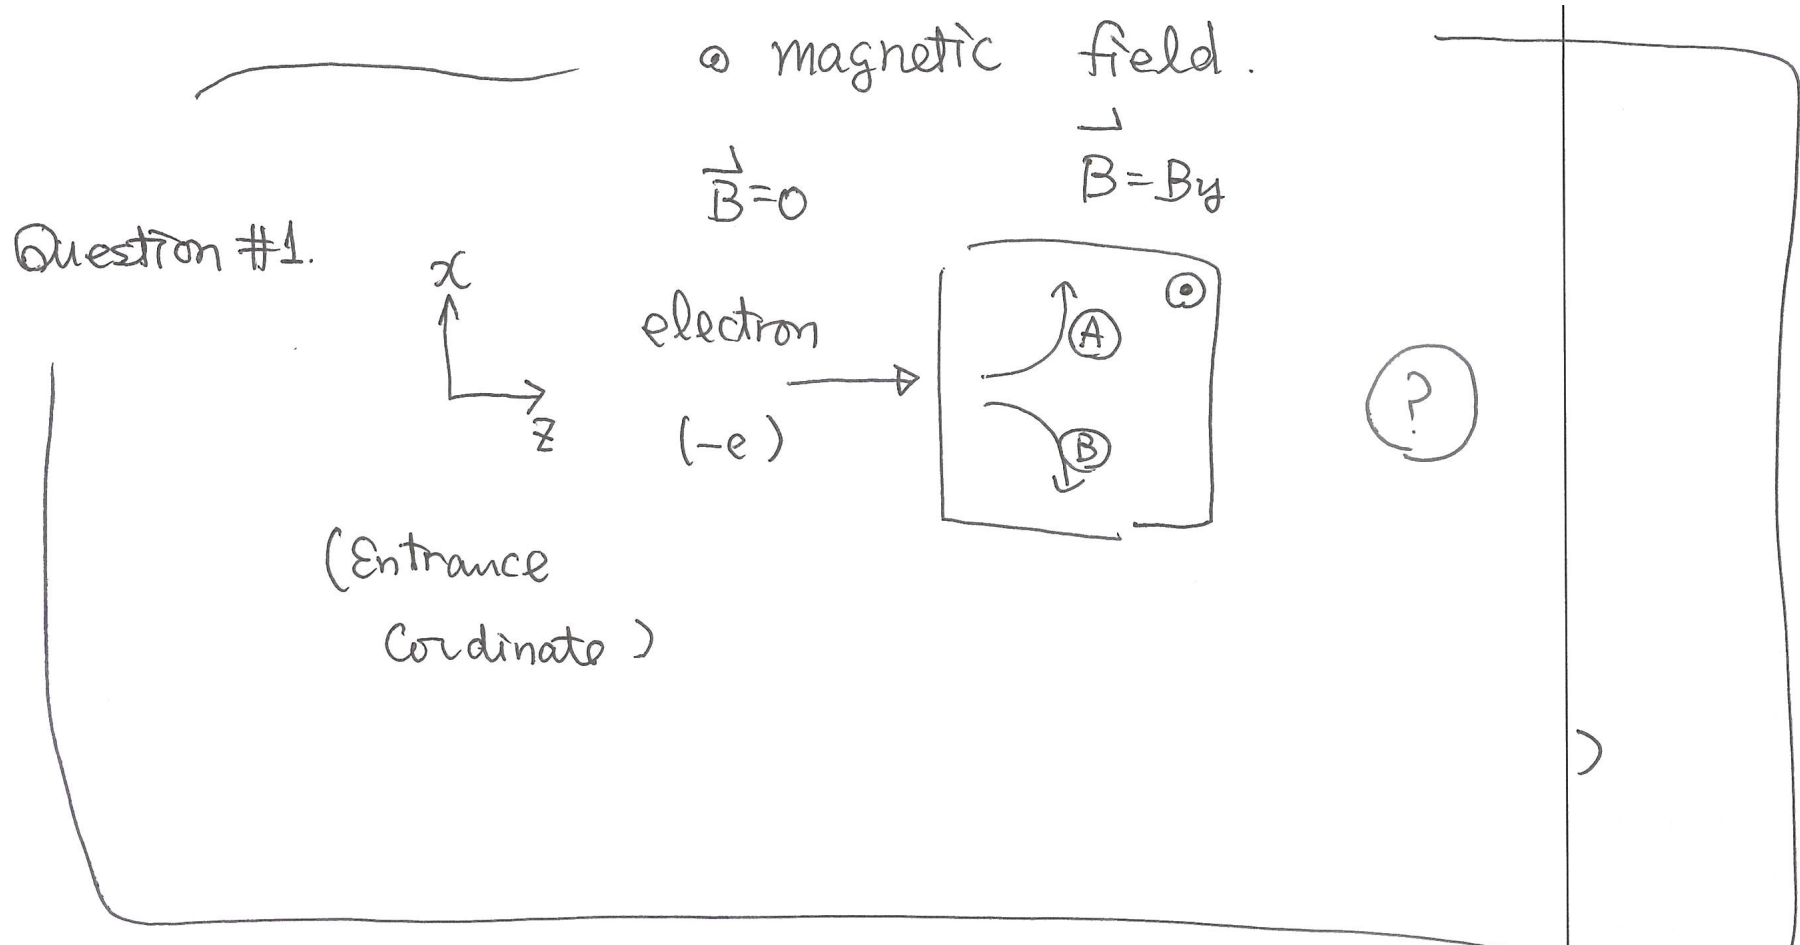 ⊙ magnetic field.
B⃗=0
B⃗=By
Question #1.
x
z
electron
(-e)
A
B
?
(Entrance
Cordinate)
)